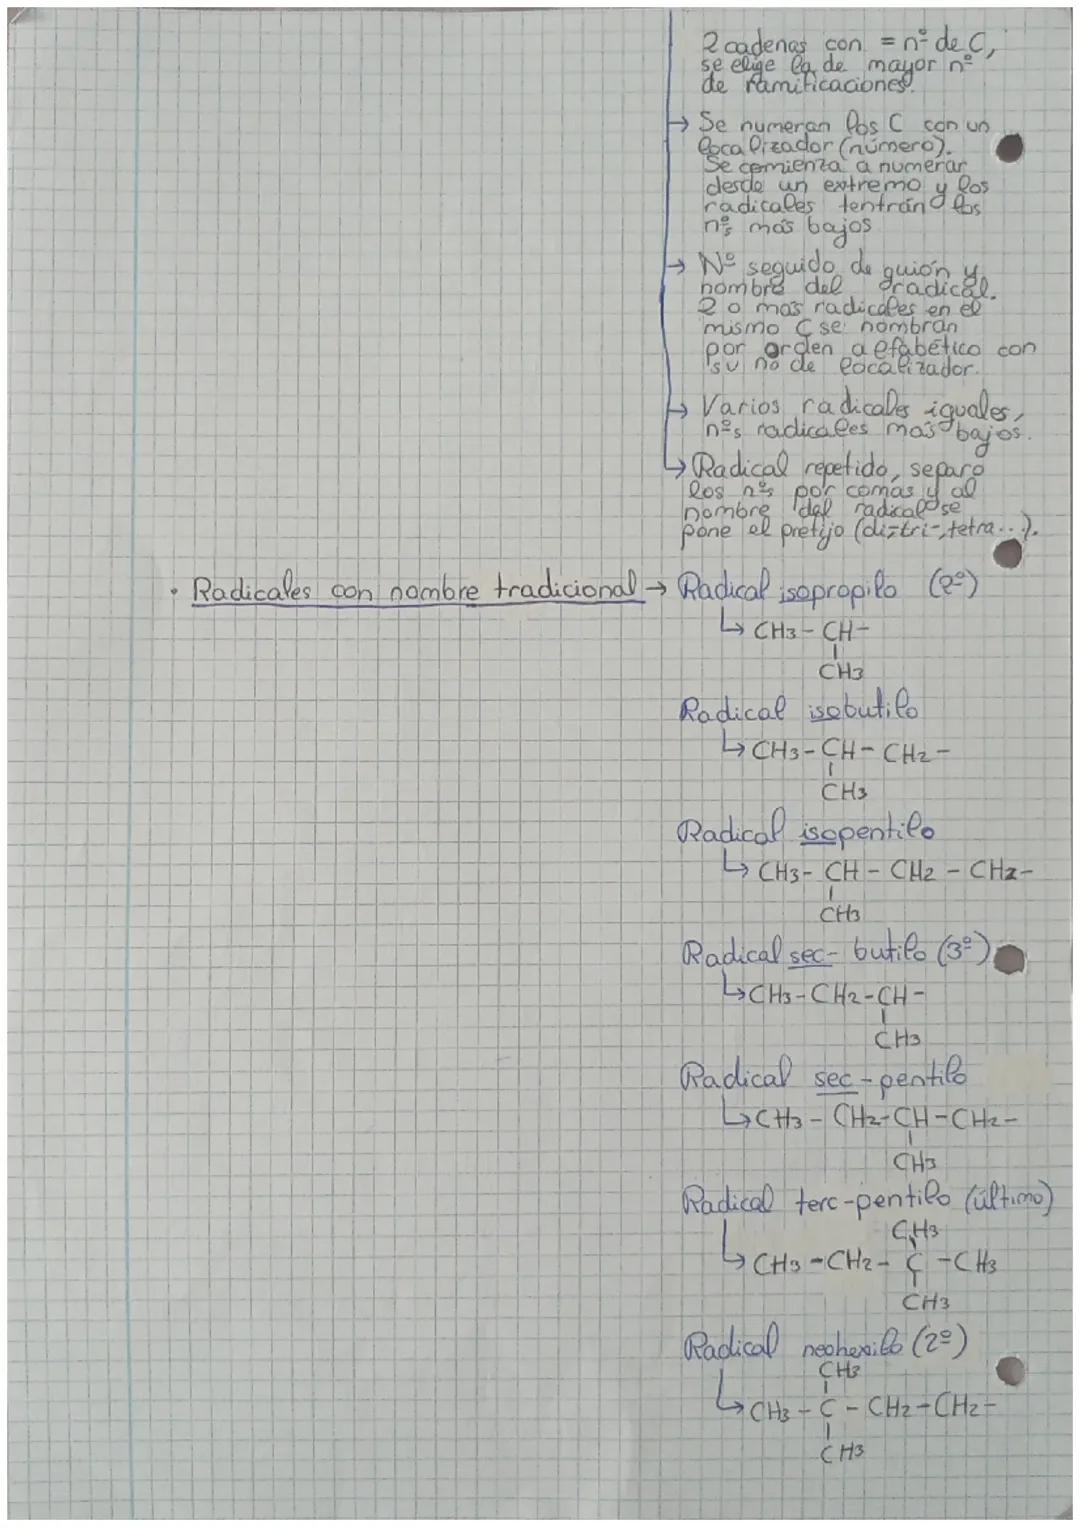 2 cadenas con = nº de C,
se elige la de mayor nº
de ramificaciones.
→ Se numeran los C con un
localizador (número).
Se comienza a numerar
desde un extremo y los
radicales tentrán los
nºs más bajos
→ Nº seguido de guión y
nombre del radical.
2 o más radicales en el
mismo C se nombran
por orden alfabético con
su no de localizador.
→ Varios radicales iguales,
nºs radicales más bajos.
→ Radical repetido, separo
los nºs por comas y al
nombre del radical se
pone el prefijo (di-,tri-,tetra...).
• Radicales con nombre tradicional → Radical isopropilo (2º)
↳ CH3 - CH -
CH3
Radical isobutilo
↳ CH3 - CH - CH2 -
CH3
Radical isopentilo
↳ CH3 - CH - CH2 - CH2 -
CH3
Radical sec- butilo (3º)
↳ CH3 - CH2 - CH -
CH3
Radical sec - pentilo
↳ CH3 - CH2 - CH - CH2 -
CH3
Radical terc-pentilo (último)
CH3
↳ CH3 - CH2 - C - CH3
CH3
Radical neohexilo (2º)
CH3
↳ CH3 - C - CH2 - CH2 -
CH3